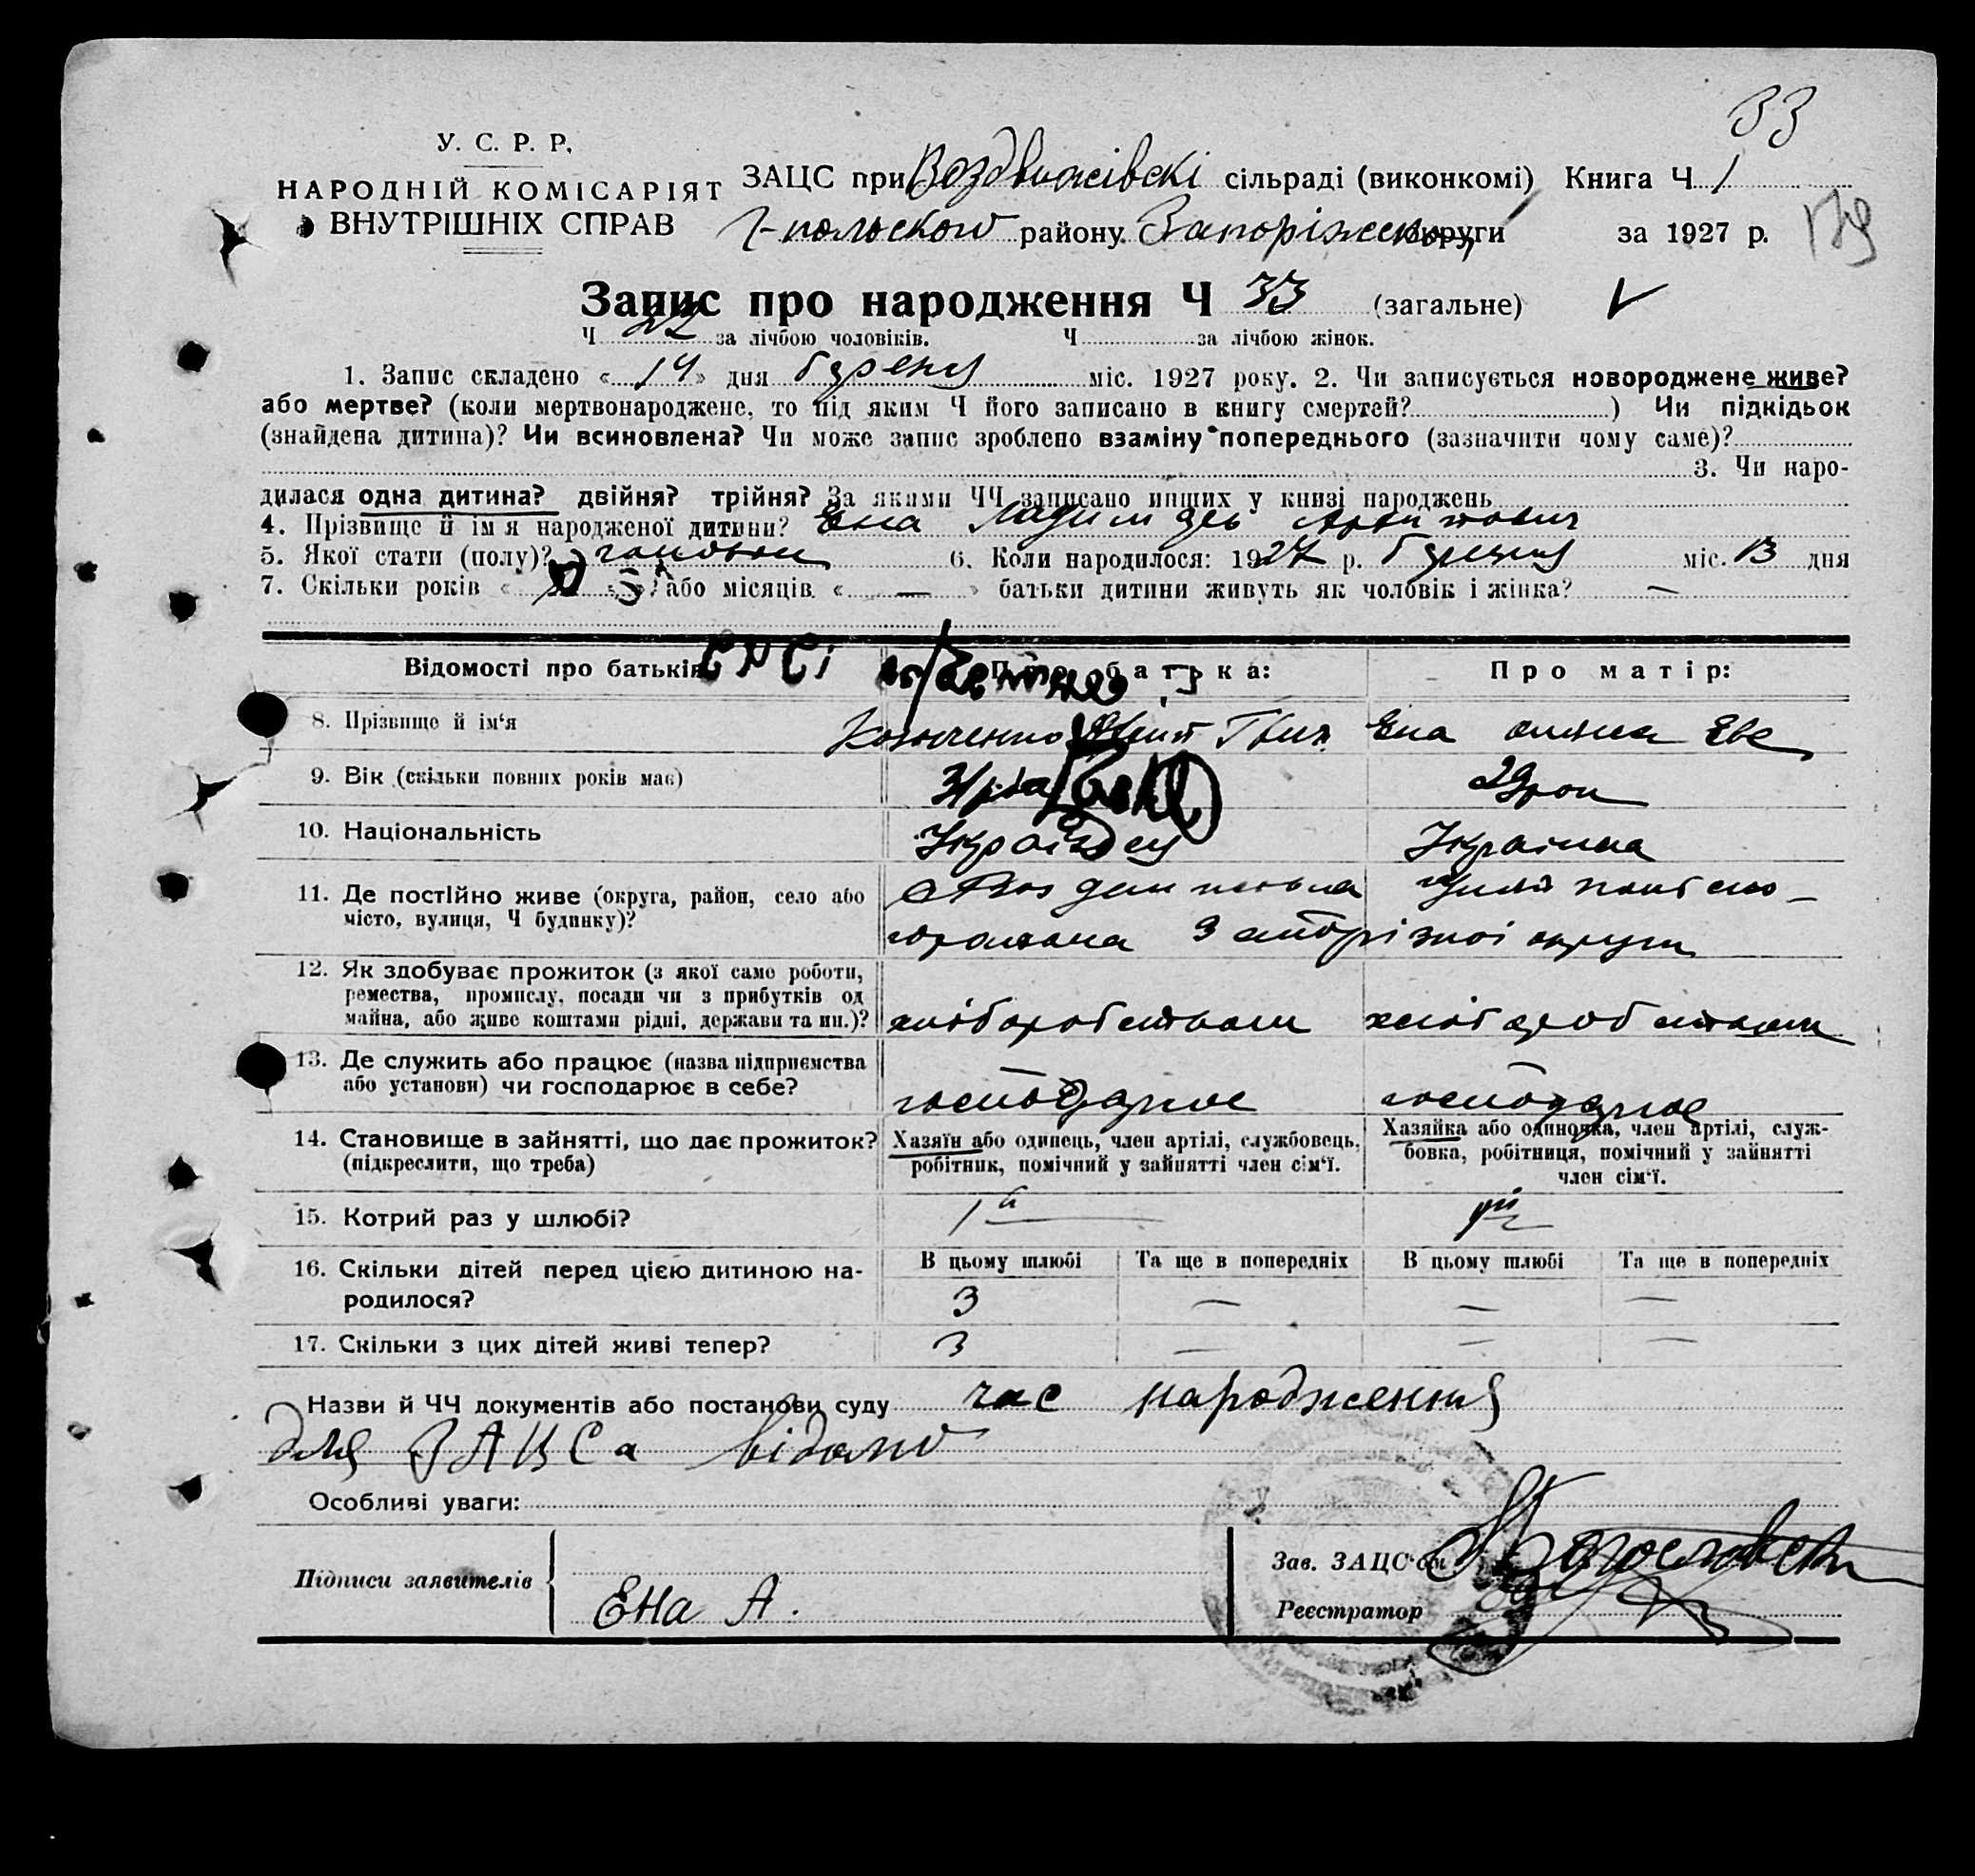 33
У. С. Р. Р.
НАРОДНІЙ КОМІСАРІЯТ
ВНУТРІШНІХ СПРАВ
ЗАЦС при Воздвижівскі сільраді (виконкомі) Книга Ч 1
Г-польского району Запоріжської округи за 1927 р.
179
Запис про народження Ч 33 (загальне) V
Ч 22 за лічбою чоловіків. Ч за лічбою жінок.
1. Запис складено « 14 » дня березня міс. 1927 року. 2. Чи записується новороджене живе?
або мертве? (коли мертвонароджене, то під яким Ч його записано в книгу смертей? ) Чи підкідьок
(знайдена дитина)? Чи всиновлена? Чи може запис зроблено взаміну попереднього (зазначити чому саме)?
3. Чи наро-
дилася одна дитина? двійня? трійня? За якими ЧЧ записано инших у книзі народжень
4. Прізвище й ім'я народженої дитини? Ена
5. Якої статі (полу)? 6. Коли народилося: 1927 р. березня міс. 13 дня
7. Скільки років « » або місяців « — » батьки дитини живуть як чоловік і жінка? —
Відомості про батьків Про батька: Про матір:
8. Прізвище й ім'я Ена
9. Вік (скільки повних років має) 29 рок
10. Національність Українец Українка
11. Де постійно живе (округа, район, село або
місто, вулиця, Ч будинку)?
Запорізкоі округи
12. Як здобуває прожиток (з якої саме роботи,
ремества, промислу, посади чи з прибутків од
майна, або живе коштами рідні, держави та ин.)? хліборобством хліборобством
13. Де служить або працює (назва підприємства
або установи) чи господарює в себе? господарює господарює
14. Становище в зайнятті, що дає прожиток?
(підкреслити, що треба)
Хазяїн або одинець, член артілі, службовець,
робітник, помічний у зайнятті член сім'ї.
Хазяйка або одиночка, член артілі, служ-
бовка, робітниця, помічний у зайнятті
член сім'ї.
15. Котрий раз у шлюбі? 1й 1й
16. Скільки дітей перед цією дитиною на-
родилося?
В цьому шлюбі Та ще в попередніх В цьому шлюбі Та ще в попередніх
3 — — —
17. Скільки з цих дітей живі тепер? 3 — — —
Назви й ЧЧ документів або постанови суду час народження
для ЗАЦСа відомо
Особливі уваги:
Підписи заявителів Ена А.
Зав. ЗАЦС'ом
Реєстратор